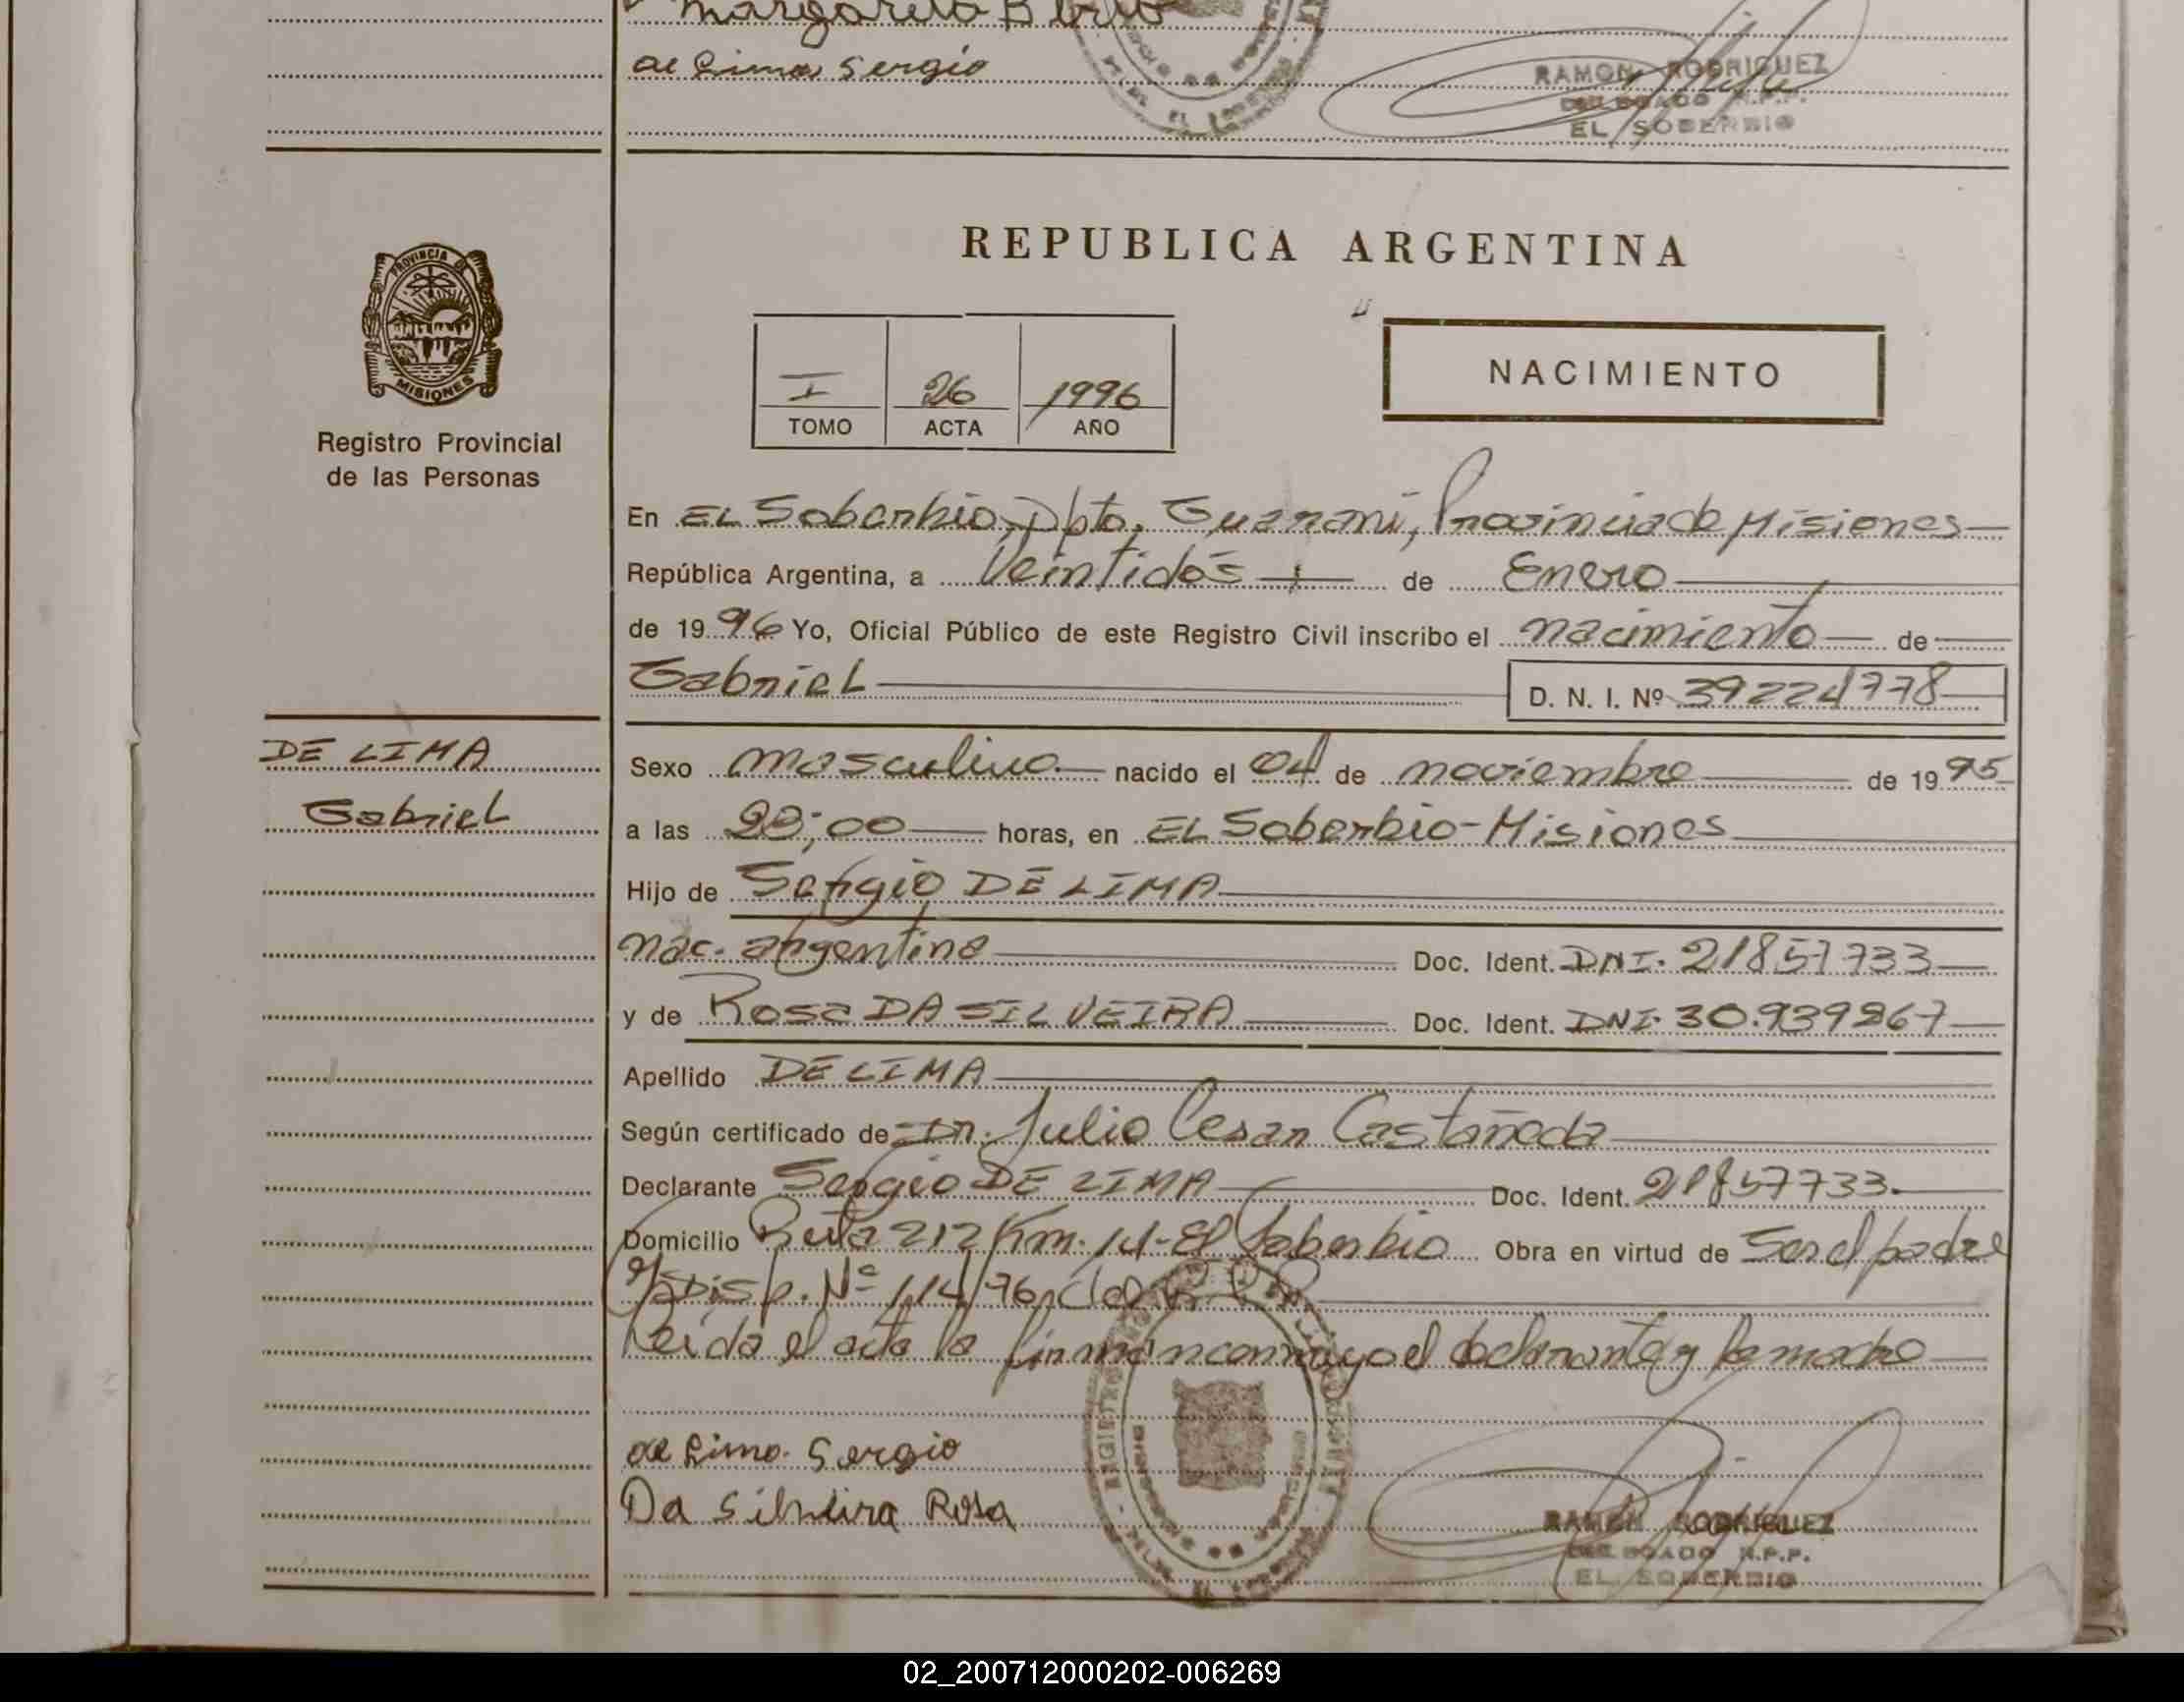 Margarita B
de Lima Sergio
RAMON RODRIGUEZ
DELEGADO R.P.P.
EL SOBERBIO
REPUBLICA ARGENTINA
PROVINCIA DE
MISIONES
Registro Provincial
de las Personas
I 26 1996
TOMO ACTA AÑO
NACIMIENTO
En EL Soberbio, Dpto. Guarani, Provincia de Misiones
República Argentina, a Veintidós de Enero
de 1996 Yo, Oficial Público de este Registro Civil inscribo el nacimiento de
Gabriel D. N. I. Nº 39224778
DE LIMA
Gabriel
Sexo masculino nacido el 04 de noviembre de 1995
a las horas, en EL Soberbio-Misiones
Hijo de Sergio DE LIMA
nac. argentina Doc. Ident. DNI. 21857733
y de Rosa DA SILVEIRA Doc. Ident. DNI. 30.939267
Apellido DE LIMA
Según certificado de Dr. Julio Cesar Castañeda
Declarante Sergio DE LIMA Doc. Ident. 21857733
Domicilio Ruta 212 Km. 14-El Soberbio Obra en virtud de Ser el padre
Disp. Nº 114/76 del
Leida el acta la firman conmigo el declarante y la madre
de Lima Sergio
Da Silveira Rosa
RAMON RODRIGUEZ
DELEGADO R.P.P.
EL SOBERBIO
02_200712000202-006269